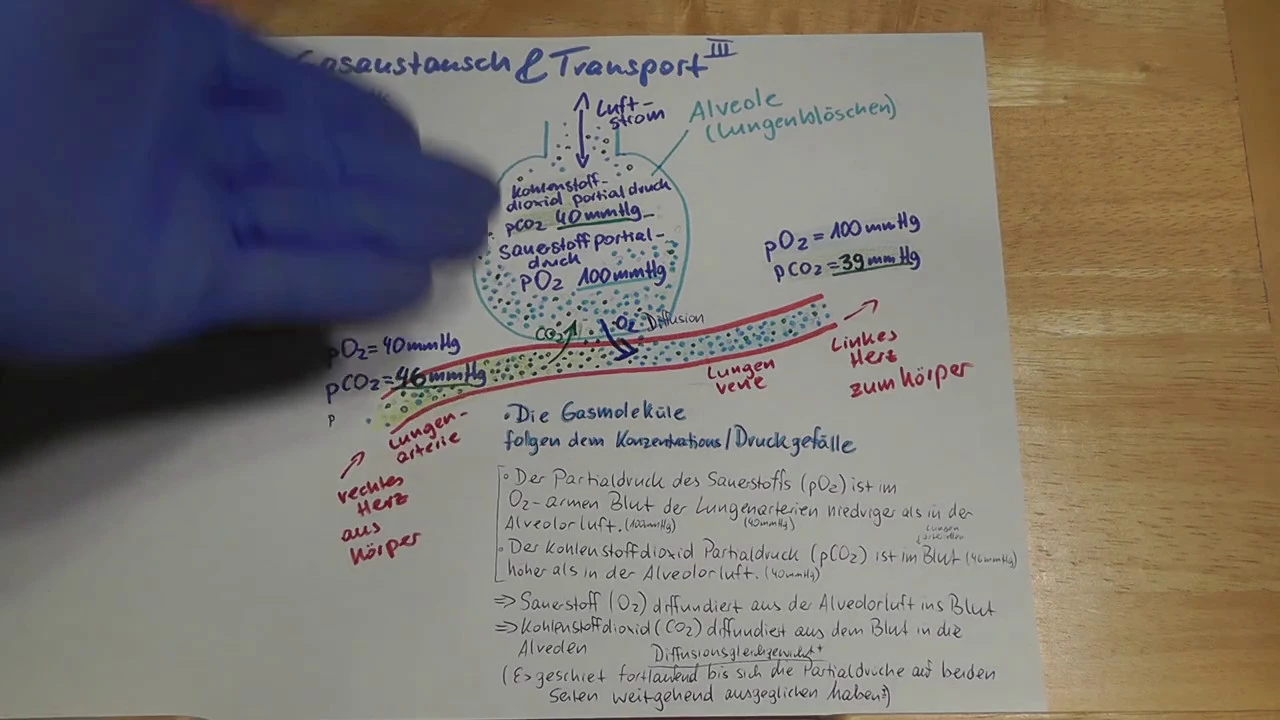 Gasaustausch & Transport III
Luft-
strom
Alveole
(Lungenbläschen)
Kohlenstoff-
dioxid partialdruck
pCO2 40mmHg
Sauerstoffpartial-
druck
pO2 100mmHg
pO2 = 100mmHg
pCO2 = 39mmHg
CO2
O2 Diffusion
pO2 = 40mmHg
pCO2 = 46mmHg
P
Lungen-
arterie
Lungen
vene
Linkes
Herz
zum Körper
rechtes
Herz
aus
Körper
• Die Gasmoleküle
folgen dem Konzentrations/Druckgefälle
• Der Partialdruck des Sauerstoffs (pO2) ist im
O2-armen Blut der Lungenarterien niedriger als in der
Alveolarluft. (100mmHg) (40mmHg)
Lungen
arterien
• Der Kohlenstoffdioxid Partialdruck (pCO2) ist im Blut (46mmHg)
höher als in der Alveolarluft. (40mmHg)
=> Sauerstoff (O2) diffundiert aus der Alveolarluft ins Blut
=> Kohlenstoffdioxid (CO2) diffundiert aus dem Blut in die
Alveolen
Diffusionsgleichgewicht*
(Es geschiet fortlaufend bis sich die Partialdrücke auf beiden
Seiten weitgehend ausgeglichen haben*)